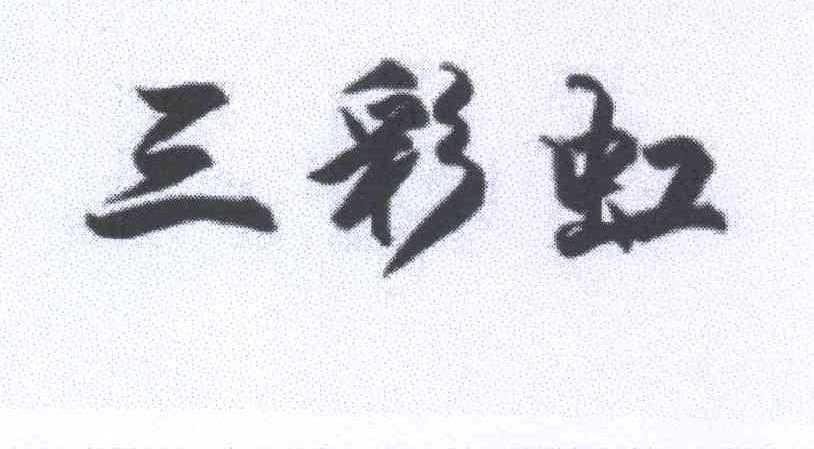 三彩虹